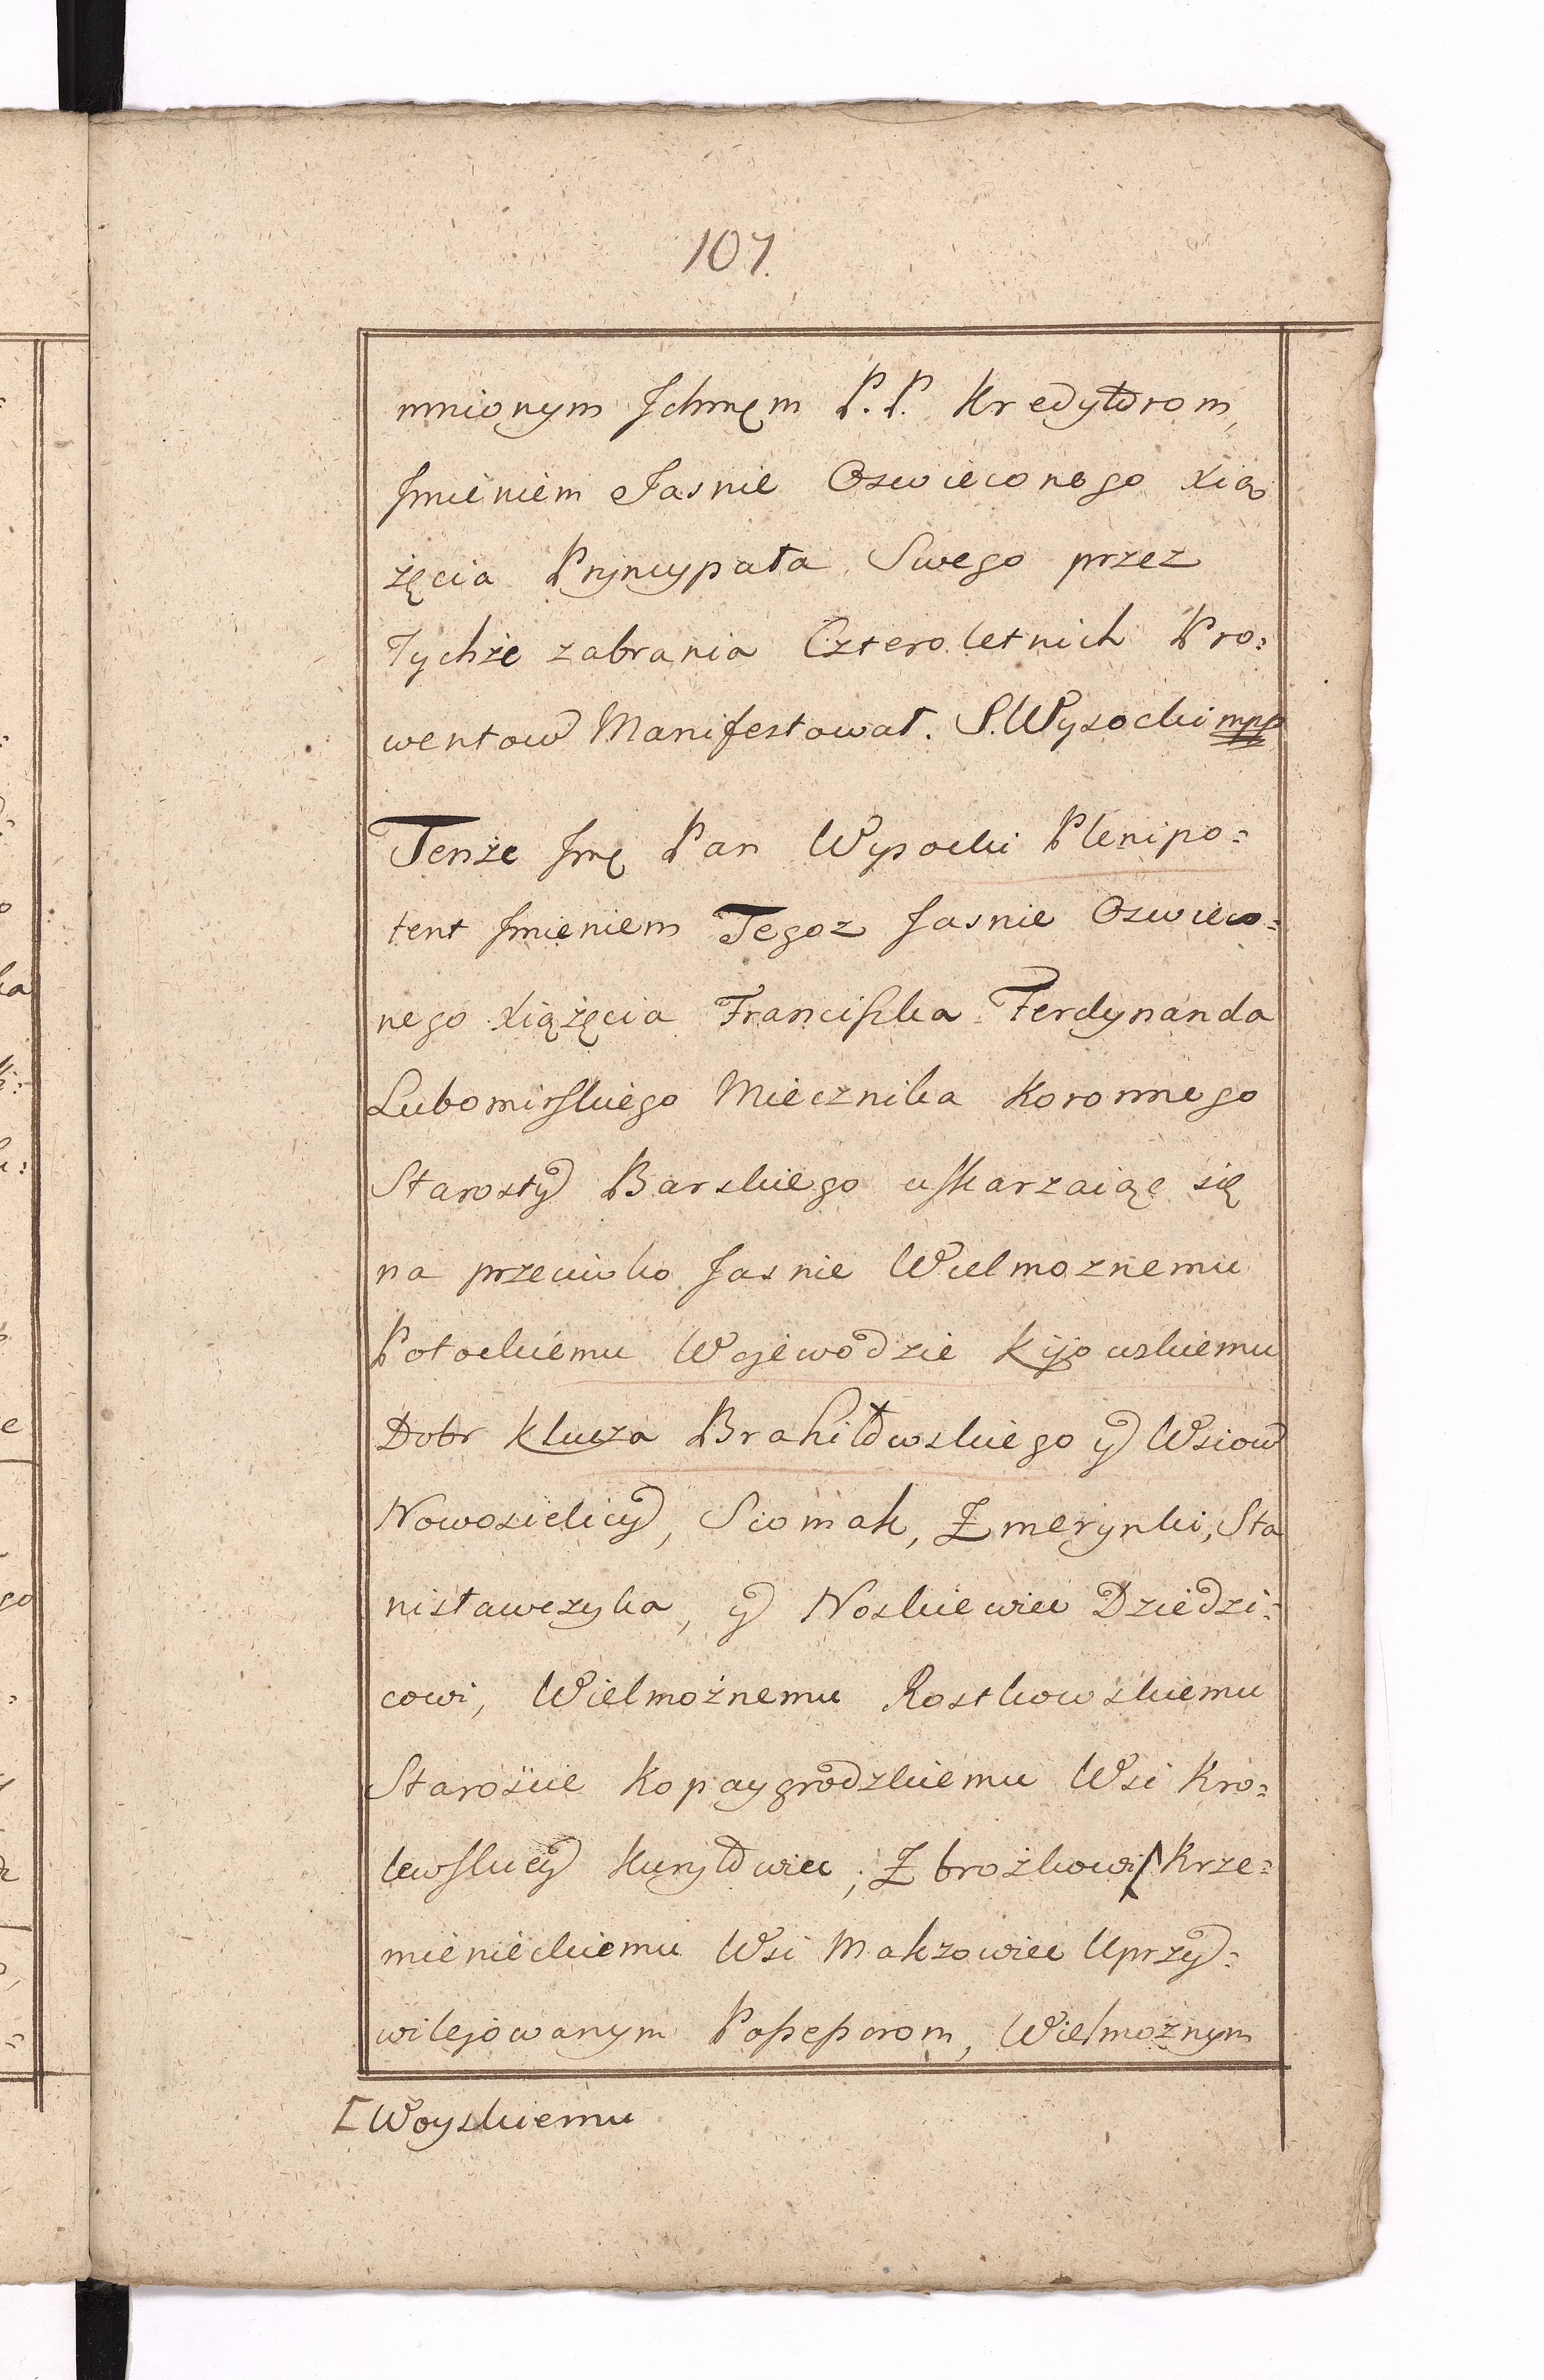 107.
mnionym Jchmcm P.P. Kredytorom,
Jmieniem Jasnie Oswieconego Xią
żęcia Pryncypała Swego przez
Tychże zabrania Czteroletnich Pro=
wentow Manifestował. S. Wysocki mpp
Tenże Jmę Pan Wysocki Plenipo=
tent Jmieniem Tegoz Jasnie Oswieco=
nego Xiążęcia Franciszka Ferdynanda
Lubomirskiego Miecznika Koronnego
Starosty Barskiego uskarzaiąc się
na przeciwko Jasnie Wielmoznemu
Potockiemu Wojewodzie Kijowskiemu
Dobr Klucza Brahiłowskiego y Wsiow
Nowosielicy, Sciomak, Zmerynki, Sta
nisławczyka, y Noskiewiec Dziedzi=
cowi, Wielmożnemu Rostkowskiemu
Staroście Kopaygrodzkiemu Wsi Kro=
lewskiey Kuryłowiec, Zbrożkowi / Krze=
mienieckiemu Wsi Makzowiec Uprzy=
wilejowanym Possessorom, Wielmożnym
[Woyskiemu